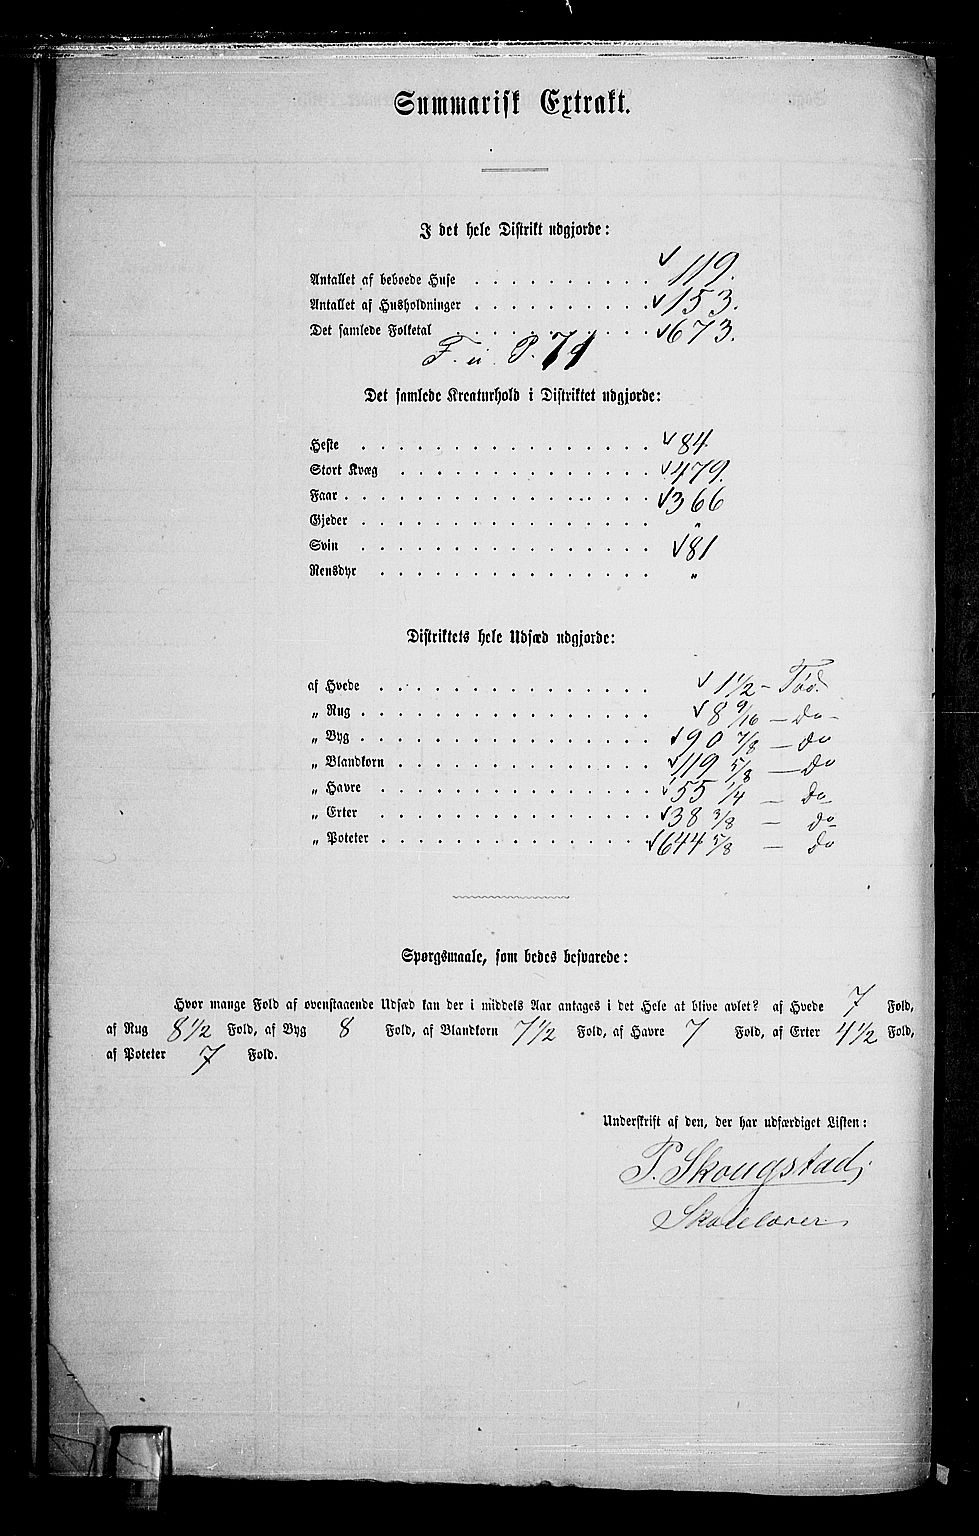 Summarisk Extrakt.
I det hele Distrikt udgjorde:
Antallet af beboede Huse . . . . . . . . . . √ 119.
Antallet af Husholdninger . . . . . . . . . . √ 153.
Det samlede Folketal . . . . . . . . . . √ 673.
F. u P. 71
Det samlede Kreaturhold i Distriktet udgjorde:
Heste . . . . . . . . . . √ 84.
Stort Kvæg . . . . . . . . . . √ 479.
Faar . . . . . . . . . . √ 366
Gjeder . . . . . . . . . . "
Svin . . . . . . . . . . √ 81
Rensdyr . . . . . . . . . . "
Distriktets hele Udsæd udgjorde:
af Hvede . . . . . . . . . . √ 1 1/2 – Tød.
„ Rug . . . . . . . . . . √ 8 9/16 – do –
„ Byg . . . . . . . . . . √ 90 7/8 – do
„ Blandkorn . . . . . . . . . . √ 119 5/8 – do
„ Havre . . . . . . . . . . √ 55 1/4 – do
„ Erter . . . . . . . . . . √ 38 3/8 – do
„ Poteter . . . . . . . . . . √ 644 5/8 – do
Spørgsmaale, som bedes besvarede:
Hvor mange Fold af ovenstaaende Udsæd kan der i middels Aar antages i det Hele at blive avlet? af Hvede 7 Fold,
af Rug 8 1/2 Fold, af Byg 8 Fold, af Blandkorn 7 1/2 Fold, af Havre 7 Fold, af Erter 4 1/2 Fold,
af Poteter 7 Fold.
Underskrift af den, der har udfærdiget Listen:
P. Skougstad,
Skolelærer